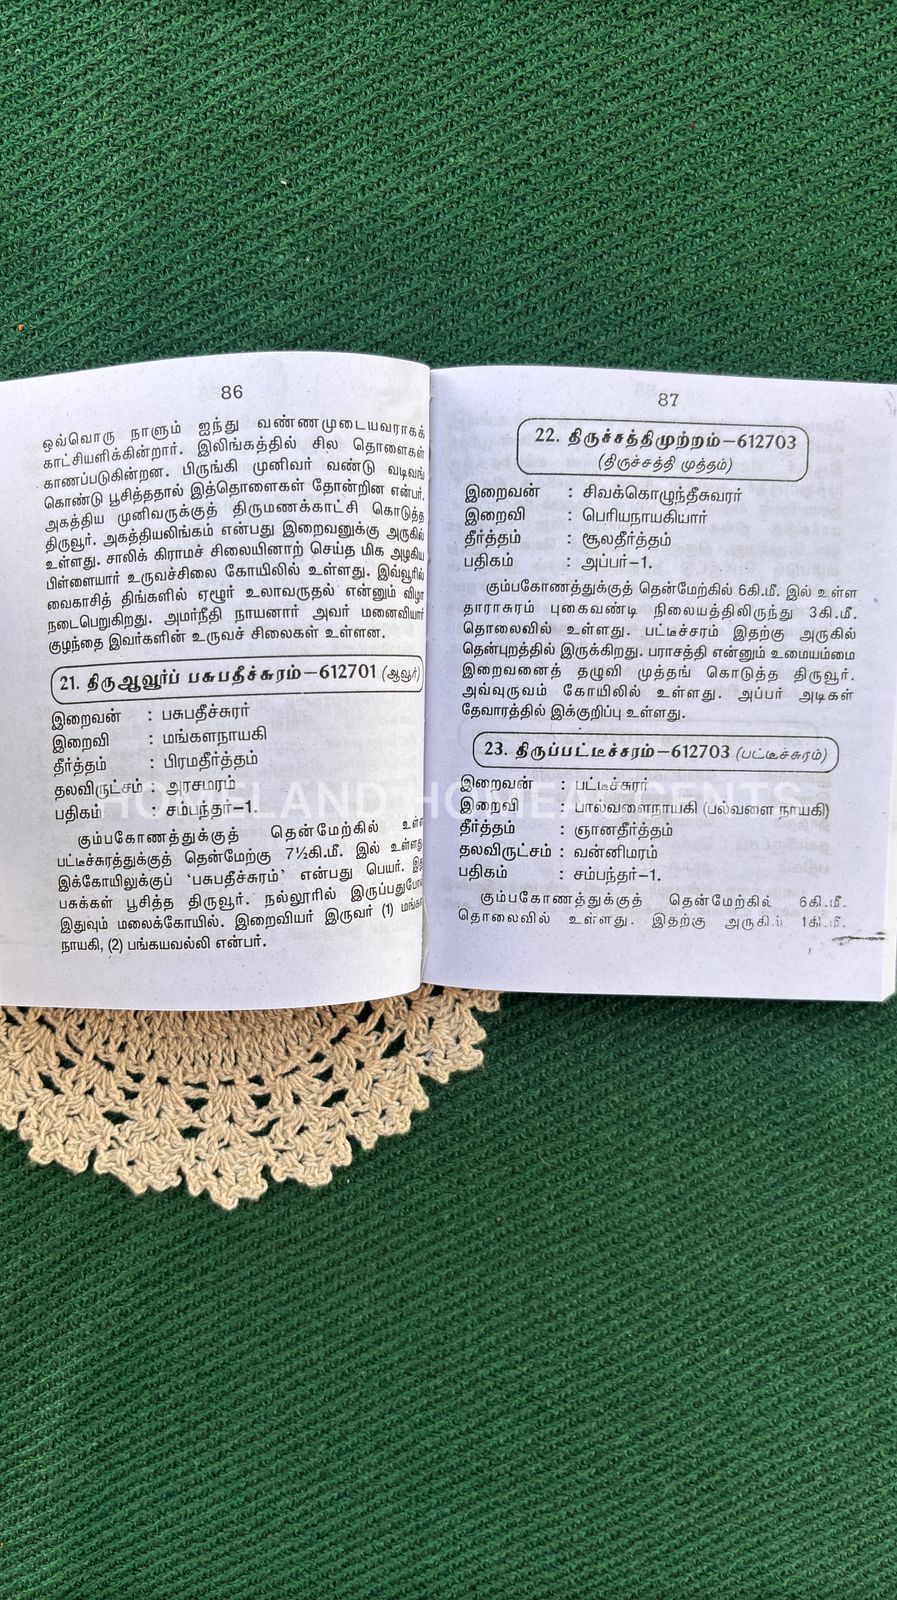 86
ஒவ்வொரு நாளும் ஐந்து வண்ணமுடையவராகக்
காட்சியளிக்கின்றார். இலிங்கத்தில் சில தொளைகள்
காணப்படுகின்றன. பிருங்கி முனிவர் வண்டு வடிவங்
கொண்டு பூசித்ததால் இத்தொளைகள் தோன்றின என்பர்.
அகத்திய முனிவருக்குத் திருமணக்காட்சி கொடுத்த
திருவூர். அகத்தியலிங்கம் என்பது இறைவனுக்கு அருகில்
உள்ளது. சாலிக் கிராமச் சிலையினாற் செய்த மிக அழகிய
பிள்ளையார் உருவச்சிலை கோயிலில் உள்ளது. இவ்வூரில்
வைகாசித் திங்களில் ஏழூர் உலாவருதல் என்னும் விழா
நடைபெறுகிறது. அமர்நீதி நாயனார் அவர் மனைவியார்
குழந்தை இவர்களின் உருவச் சிலைகள் உள்ளன.
21. திருஆவூர்ப் பசுபதீச்சுரம்–612701 (ஆவூர்)
இறைவன் : பசுபதீச்சுரர்
இறைவி : மங்களநாயகி
தீர்த்தம் : பிரமதீர்த்தம்
தலவிருட்சம் : அரசமரம்
பதிகம் : சம்பந்தர்–1.
கும்பகோணத்துக்குத் தென்மேற்கில் உள்ள
பட்டீச்சுரத்துக்குத் தென்மேற்கு 7½கி.மீ. இல் உள்ளது.
இக்கோயிலுக்குப் ‘பசுபதீச்சுரம்’ என்பது பெயர். இது
பசுக்கள் பூசித்த திருவூர். நல்லூரில் இருப்பதுபோல
இதுவும் மலைக்கோயில். இறைவியர் இருவர் (1) மங்கள
நாயகி, (2) பங்கயவல்லி என்பர்.
87
22. திருச்சத்திமுற்றம்–612703
(திருச்சத்தி முத்தம்)
இறைவன் : சிவக்கொழுந்தீசுவரர்
இறைவி : பெரியநாயகியார்
தீர்த்தம் : சூலதீர்த்தம்
பதிகம் : அப்பர்–1.
கும்பகோணத்துக்குத் தென்மேற்கில் 6கி.மீ. இல் உள்ள
தாராசுரம் புகைவண்டி நிலையத்திலிருந்து 3கி.மீ.
தொலைவில் உள்ளது. பட்டீச்சரம் இதற்கு அருகில்
தென்புறத்தில் இருக்கிறது. பராசத்தி என்னும் உமையம்மை
இறைவனைத் தழுவி முத்தங் கொடுத்த திருவூர்.
அவ்வுருவம் கோயிலில் உள்ளது. அப்பர் அடிகள்
தேவாரத்தில் இக்குறிப்பு உள்ளது.
23. திருப்பட்டீச்சரம்–612703 (பட்டீச்சுரம்)
இறைவன் : பட்டீச்சுரர்
இறைவி : பால்வளைநாயகி (பல்வளை நாயகி)
தீர்த்தம் : ஞானதீர்த்தம்
தலவிருட்சம் : வன்னிமரம்
பதிகம் : சம்பந்தர்–1.
கும்பகோணத்துக்குத் தென்மேற்கில் 6கி.மீ.
தொலைவில் உள்ளது. இதற்கு அருகில் 1கி.மீ.
HOMELAND HOME ACCENTS